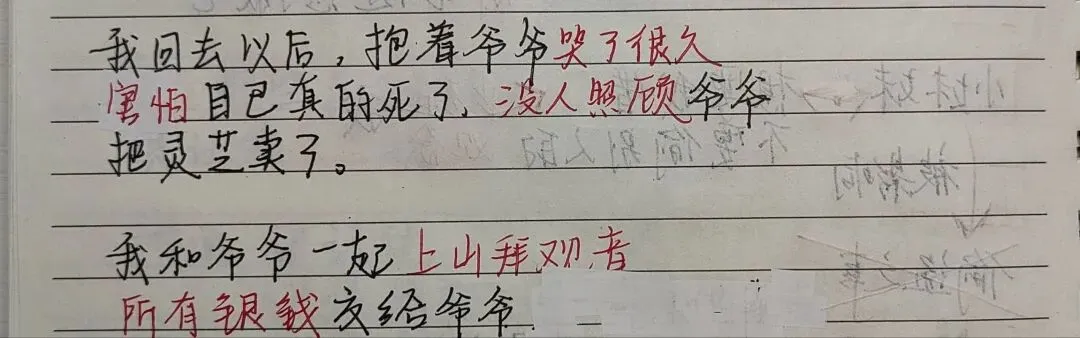 我回去以后，抱着爷爷哭了很久
害怕自己真的死了，没人照顾爷爷
把灵芝卖了。
我和爷爷一起上山拜观音
所有银钱交给爷爷